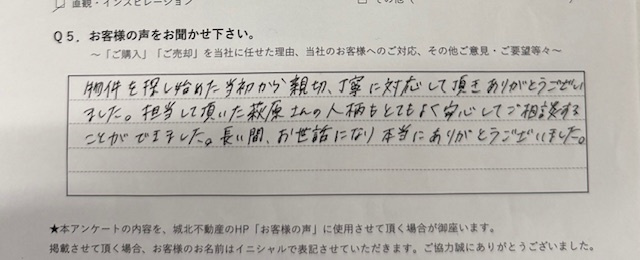 直観・インスピレーション □ その他（ ）
Q5．お客様の声をお聞かせ下さい。
～「ご購入」「ご売却」を当社に任せた理由、当社のお客様へのご対応、その他ご意見・ご要望等々～
物件を探し始めた当初から親切、丁寧に対応して頂きありがとうござい
ました。担当して頂いた萩原さんの人柄もとてもよく安心してご相談する
ことができました。長い間、お世話になり本当にありがとうございました。
★本アンケートの内容を、城北不動産のHP「お客様の声」に使用させて頂く場合が御座います。
掲載させて頂く場合、お客様のお名前はイニシャルで表記させていただきます。ご協力誠にありがとうございました。